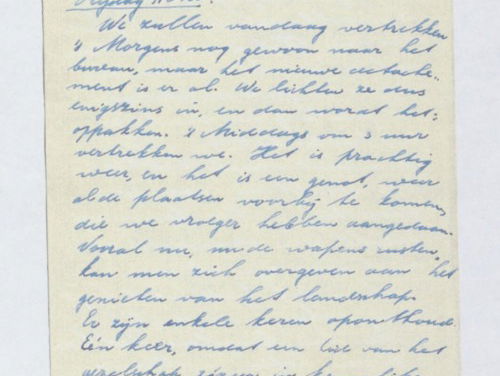 Vrijdag
We zullen vandaag vertrekken
's Morgens nog gewoon naar het
bureau, maar het nieuwe detache-
ment is er al. We lichten ze dus
enigszins in, en dan wordt het:
oppakken. 's Middags om 3 uur
vertrekken we. Het is prachtig
weer, en het is een genot, weer
al de plaatsen voorbij te komen,
die we vroeger hebben aangedaan.
Vooral nu, nu de wapens rusten,
kan men zich overgeven aan het
genieten van het landschap.
Er zijn enkele keren oponthoud.
Eén keer, omdat een lid van het
gezelschap